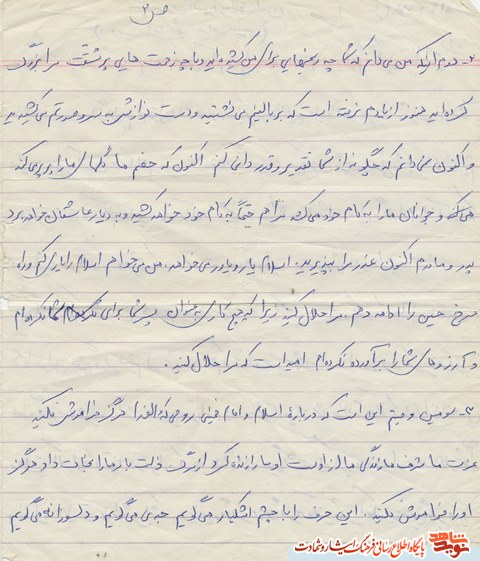 ص ۲
۲- دوم اینکه من می دانم که شما چه رنجهایی برای من کشیده اید و با چه زحمت هایی پر مشقت مرا بزرگ
کرده اید هنوز از یادم نرفته است که بر بالینم می نشستید و دست نوازش به سر و صورتم می کشیدید
و اکنون نمی دانم که چگونه از شما تقدیر و قدردانی کنم اکنون که خصم ما گلهای ما را پرپر می کند
می کشد و جوانان ما را به کام خود می کشد مرا هم حتماً به کام خود خواهد کشید و به دیار عاشقان خواهد برد
پدر و مادرم اکنون عذر مرا بپذیرید. اسلام یار و یاور می خواهد. من می خواهم اسلام را یاری کنم و راه
سرخ حسین را ادامه دهم. مرا حلال کنید زیرا که هیچ کاری به عنوان پسر شما برای شما نکرده ام
و آرزوهای شما را برآورده نکرده ام امید است که مرا حلال کنید.
۳- سومین وصیتم این است که درباره اسلام و امام خمینی روحی له الفدا هرگز فراموش نکنید
عزت ما شرف ما زندگی ما از اوست او ما را زنده کرد از مرگ ذلت بار ما را نجات داد هرگز
او را فراموش نکنید. این حرف را با چشم اشکبار می گویم جدی می گویم و دلسوزانه می گویم
نوید شاهد
پایگاه اطلاع رسانی فرهنگ ایثار و شهادت